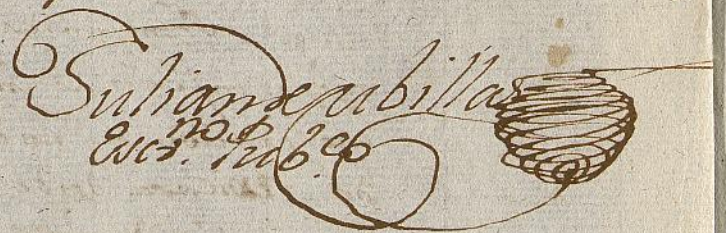 Julian de ubillos
Escrno. Pubco